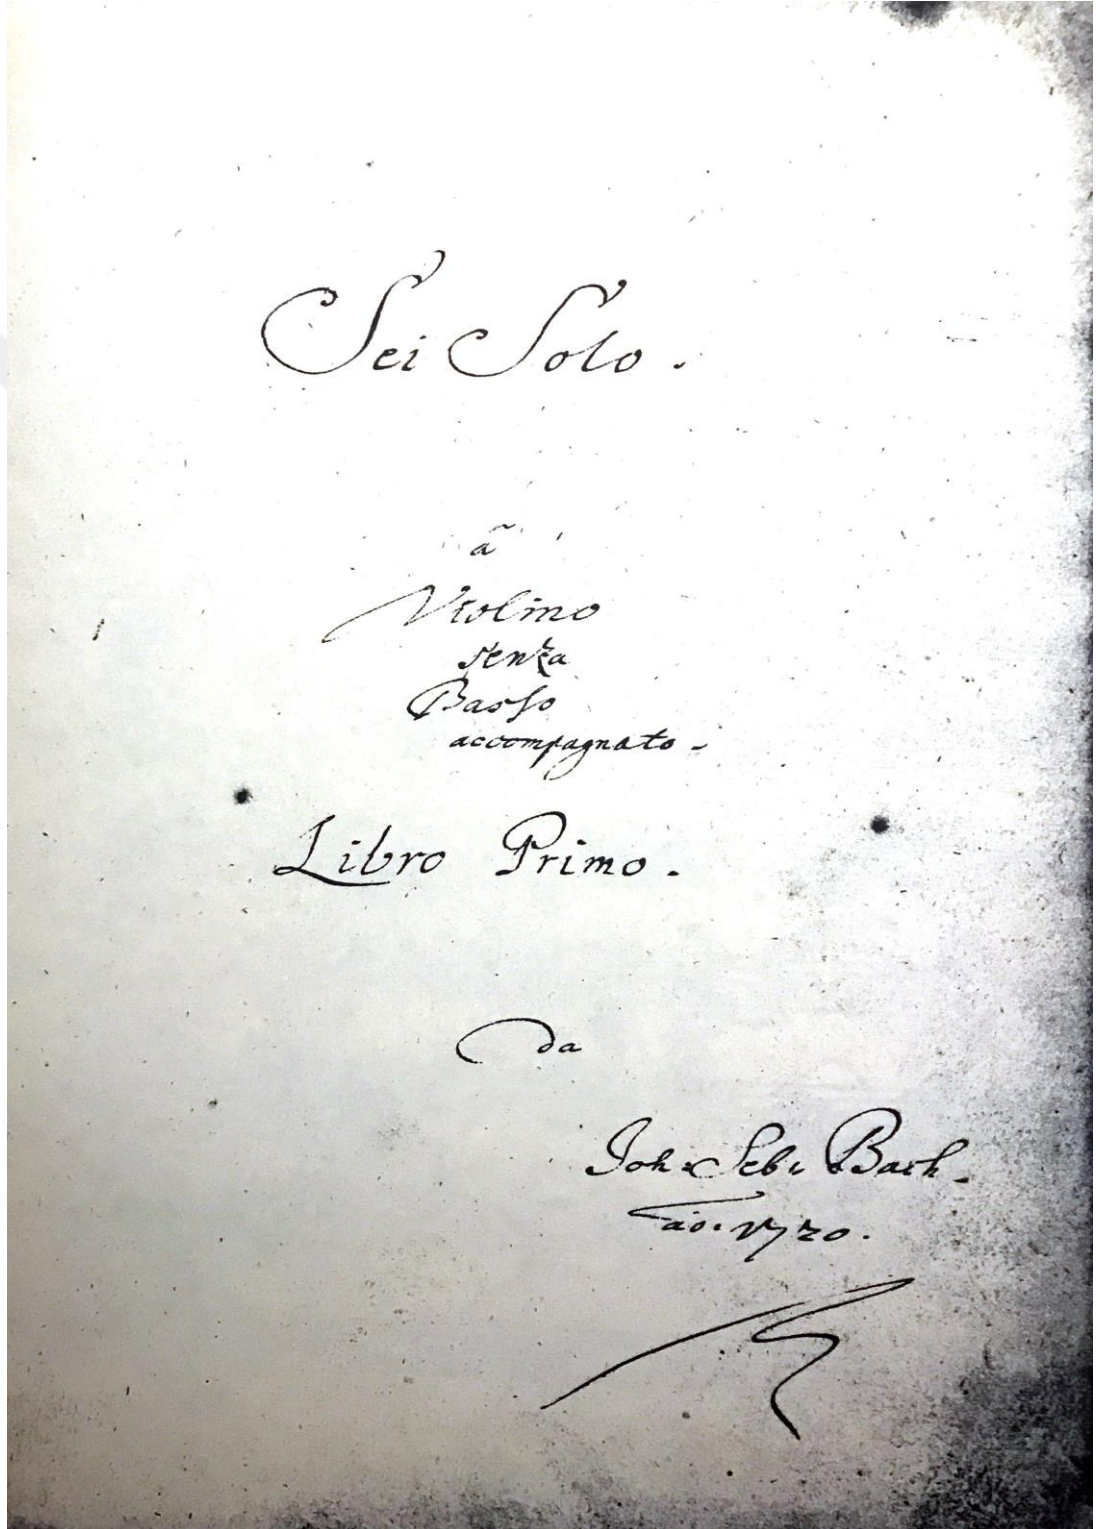 Sei Solo.
ã
Violino
senza
Basso
accompagnato.
Libro Primo.
da
Joh. Seb. Bach.
ao. 1720.